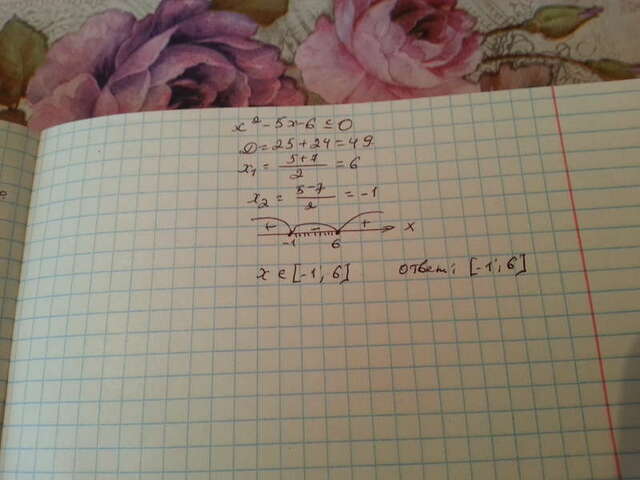 x² - 5x - 6 ≤ 0
D = 25 + 24 = 49
x₁ = (5+7)/2 = 6
x₂ = (5-7)/2 = -1
+ - + x
-1 6
x ∈ [-1; 6] Ответ: [-1; 6]